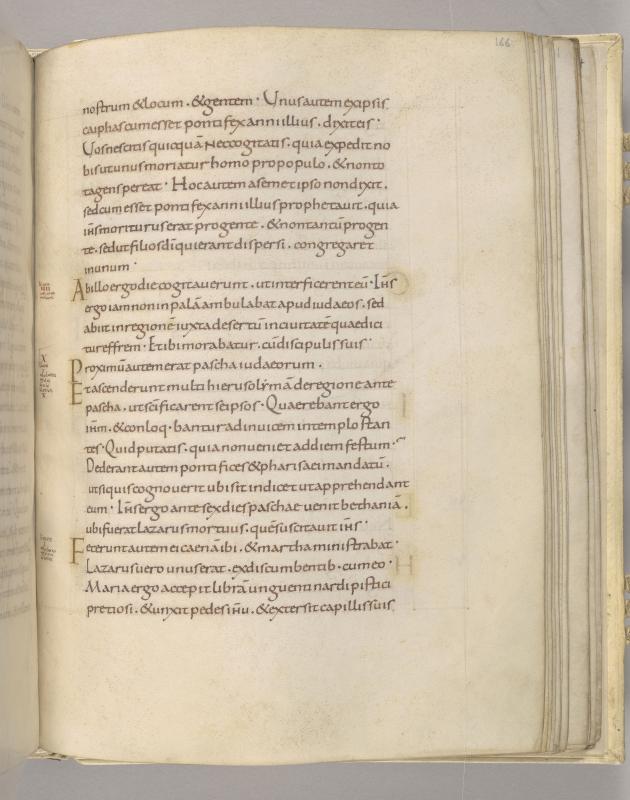 166
nostrum & locum . & gentem . Unus autem ex ipsis
caiphas cum esset pontifex anni illius . dixit eis .
Vos nescitis quicquā Nec cogitatis . quia expedit no
bis ut unus moriatur homo pro populo . & non to
ta gens pereat . Hoc autem a semet ipso non dixit .
sed cum esset pontifex anni illius prophetauit . quia
ih̄s moriturus erat pro gente . & non tantū pro gen
te . sed ut filios dī qui erant dispersi . congregaret
in unum .
Ab illo ergo die cogitauerunt . ut interficerent eū . Ih̄s
ergo iam non in palā ambulabat apud iudaeos . sed
abiit in regionē iuxta desertū in ciuitatē quae dici
tur effrem . Et ibi morabatur . cū discipulis suis .
Proximū autem erat pascha iudaeorum .
Et ascenderunt multi hierusolymā de regione ante
pascha . ut sc̄ificarent se ipsos . Quaerebant ergo
ih̄m . & conloq . bantur ad inuicem in templo stan
tes . Quid putatis . quia non ueniet ad diem festum .
Dederant autem pontifices & pharisaei mandatū .
ut si quis cognouerit ubi sit indicet ut apprehendant
eum . Ih̄s ergo ante sex dies paschae uenit bethaniā .
ubi fuerat lazarus mortuus . quē suscitauit ih̄s .
Fecerunt autem ei caenā ibi . & martha ministrabat .
Lazarus uero unus erat . ex discumbentib . cum eo .
Maria ergo accepit librā unguenti nardi pistici
pretiosi . & unxit pedes ih̄u . & extersit capillis suis